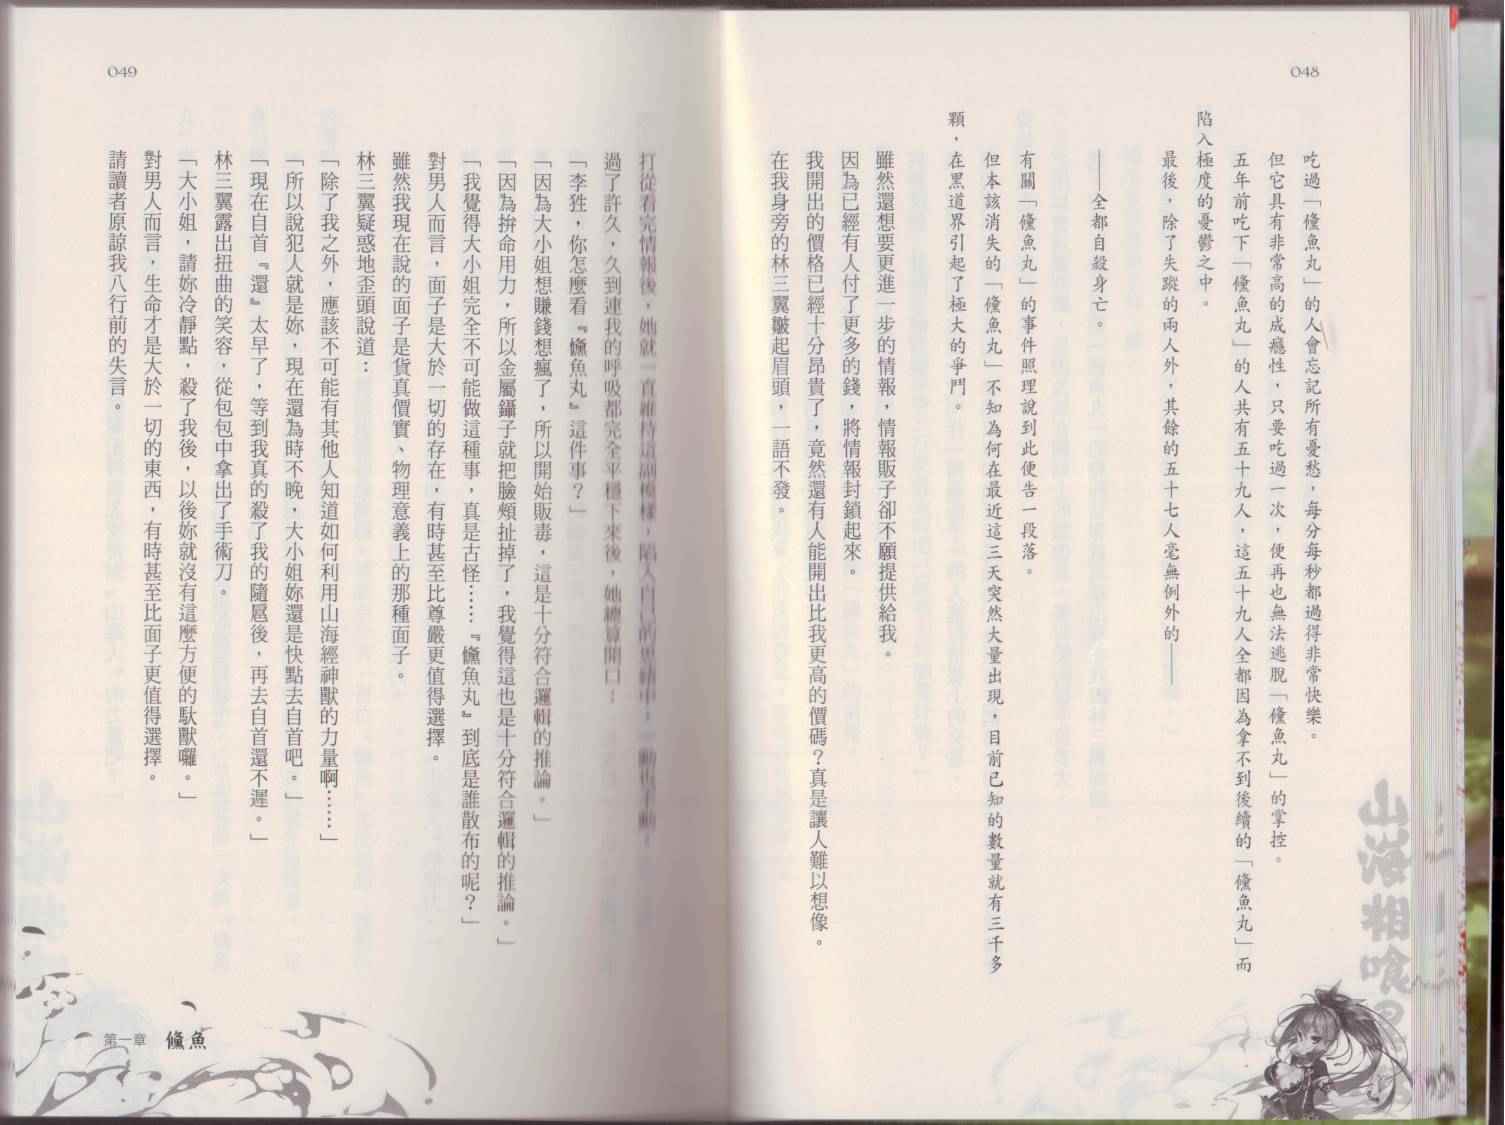 048
吃過「儵魚丸」的人會忘記所有憂愁，每分每秒都過得非常快樂。
但它具有非常高的成癮性，只要吃過一次，便再也無法逃脫「儵魚丸」的掌控。
五年前吃下「儵魚丸」的人共有五十九人，這五十九人全都因為拿不到後續的「儵魚丸」而
陷入極度的憂鬱之中。
最後，除了失蹤的兩人外，其餘的五十七人毫無例外的——
——全都自殺身亡。
有關「儵魚丸」的事件照理說到此便告一段落。
但本該消失的「儵魚丸」不知為何在最近這三天突然大量出現，目前已知的數量就有三千多
顆，在黑道界引起了極大的爭鬥。
雖然還想要更進一步的情報，情報販子卻不願提供給我。
因為已經有人付了更多的錢，將情報封鎖起來。
我開出的價格已經十分昂貴了，竟然還有人能開出比我更高的價碼？真是讓人難以想像。
在我身旁的林三翼皺起眉頭，一語不發。
山海相喰
049
打從看完情報後，她就一直維持這副模樣，陷入自己的思緒中，一動也不動。
過了許久，久到連我的呼吸都完全平穩下來後，她總算開口：
「李狌，你怎麼看『儵魚丸』這件事？」
「因為大小姐想賺錢想瘋了，所以開始販毒，這是十分符合邏輯的推論。」
「因為拚命用力，所以金屬鑷子就把臉頰扯掉了，我覺得這也是十分符合邏輯的推論。」
「我覺得大小姐完全不可能做這種事，真是古怪……『儵魚丸』到底是誰散布的呢？」
對男人而言，面子是大於一切的存在，有時甚至比尊嚴更值得選擇。
雖然我現在說的面子是貨真價實、物理意義上的那種面子。
林三翼疑惑地歪頭說道：
「除了我之外，應該不可能有其他人知道如何利用山海經神獸的力量啊……」
「所以說犯人就是妳，現在還為時不晚，大小姐妳還是快點去自首吧。」
「現在自首『還』太早了，等到我真的殺了我的隨扈後，再去自首還不遲。」
林三翼露出扭曲的笑容，從包包中拿出了手術刀。
「大小姐，請妳冷靜點，殺了我後，以後妳就沒有這麼方便的馱獸囉。」
對男人而言，生命才是大於一切的東西，有時甚至比面子更值得選擇。
請讀者原諒我八行前的失言。
第一章 儵魚